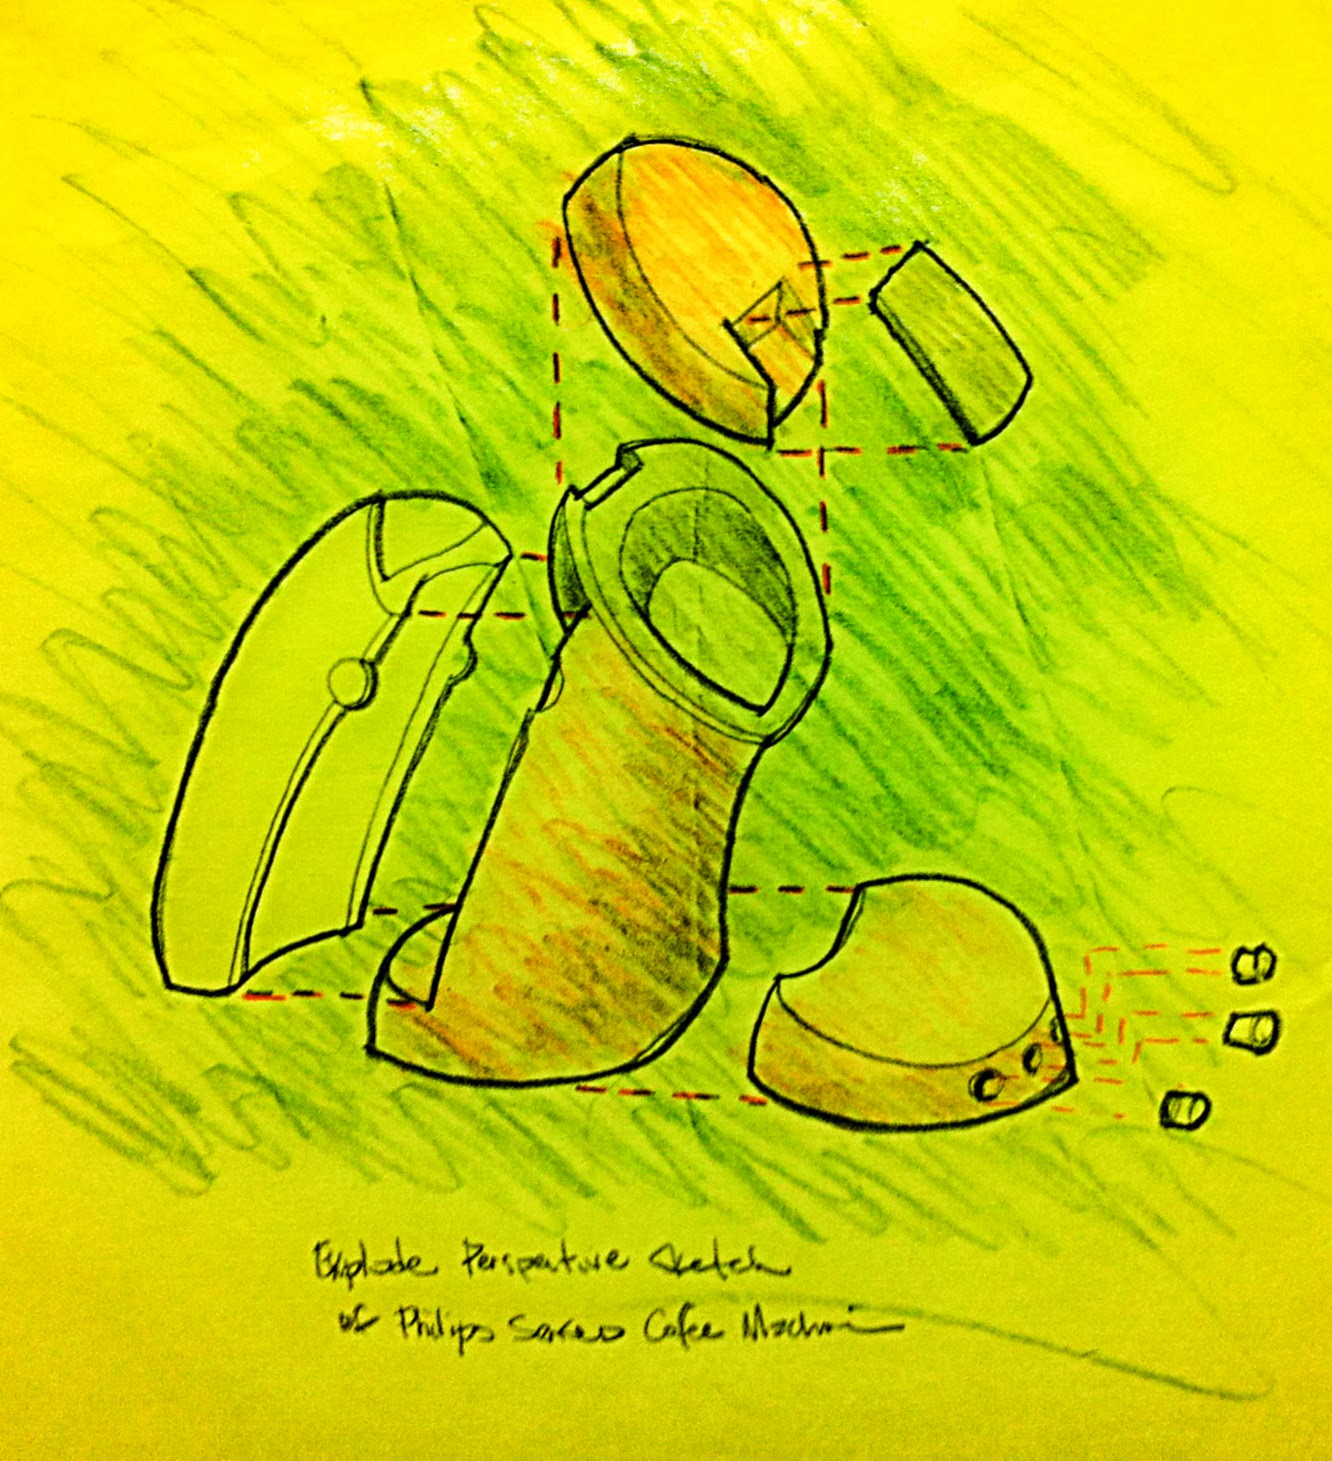 Explode Perspective Sketch
of Philips Senseo Cofee Machine